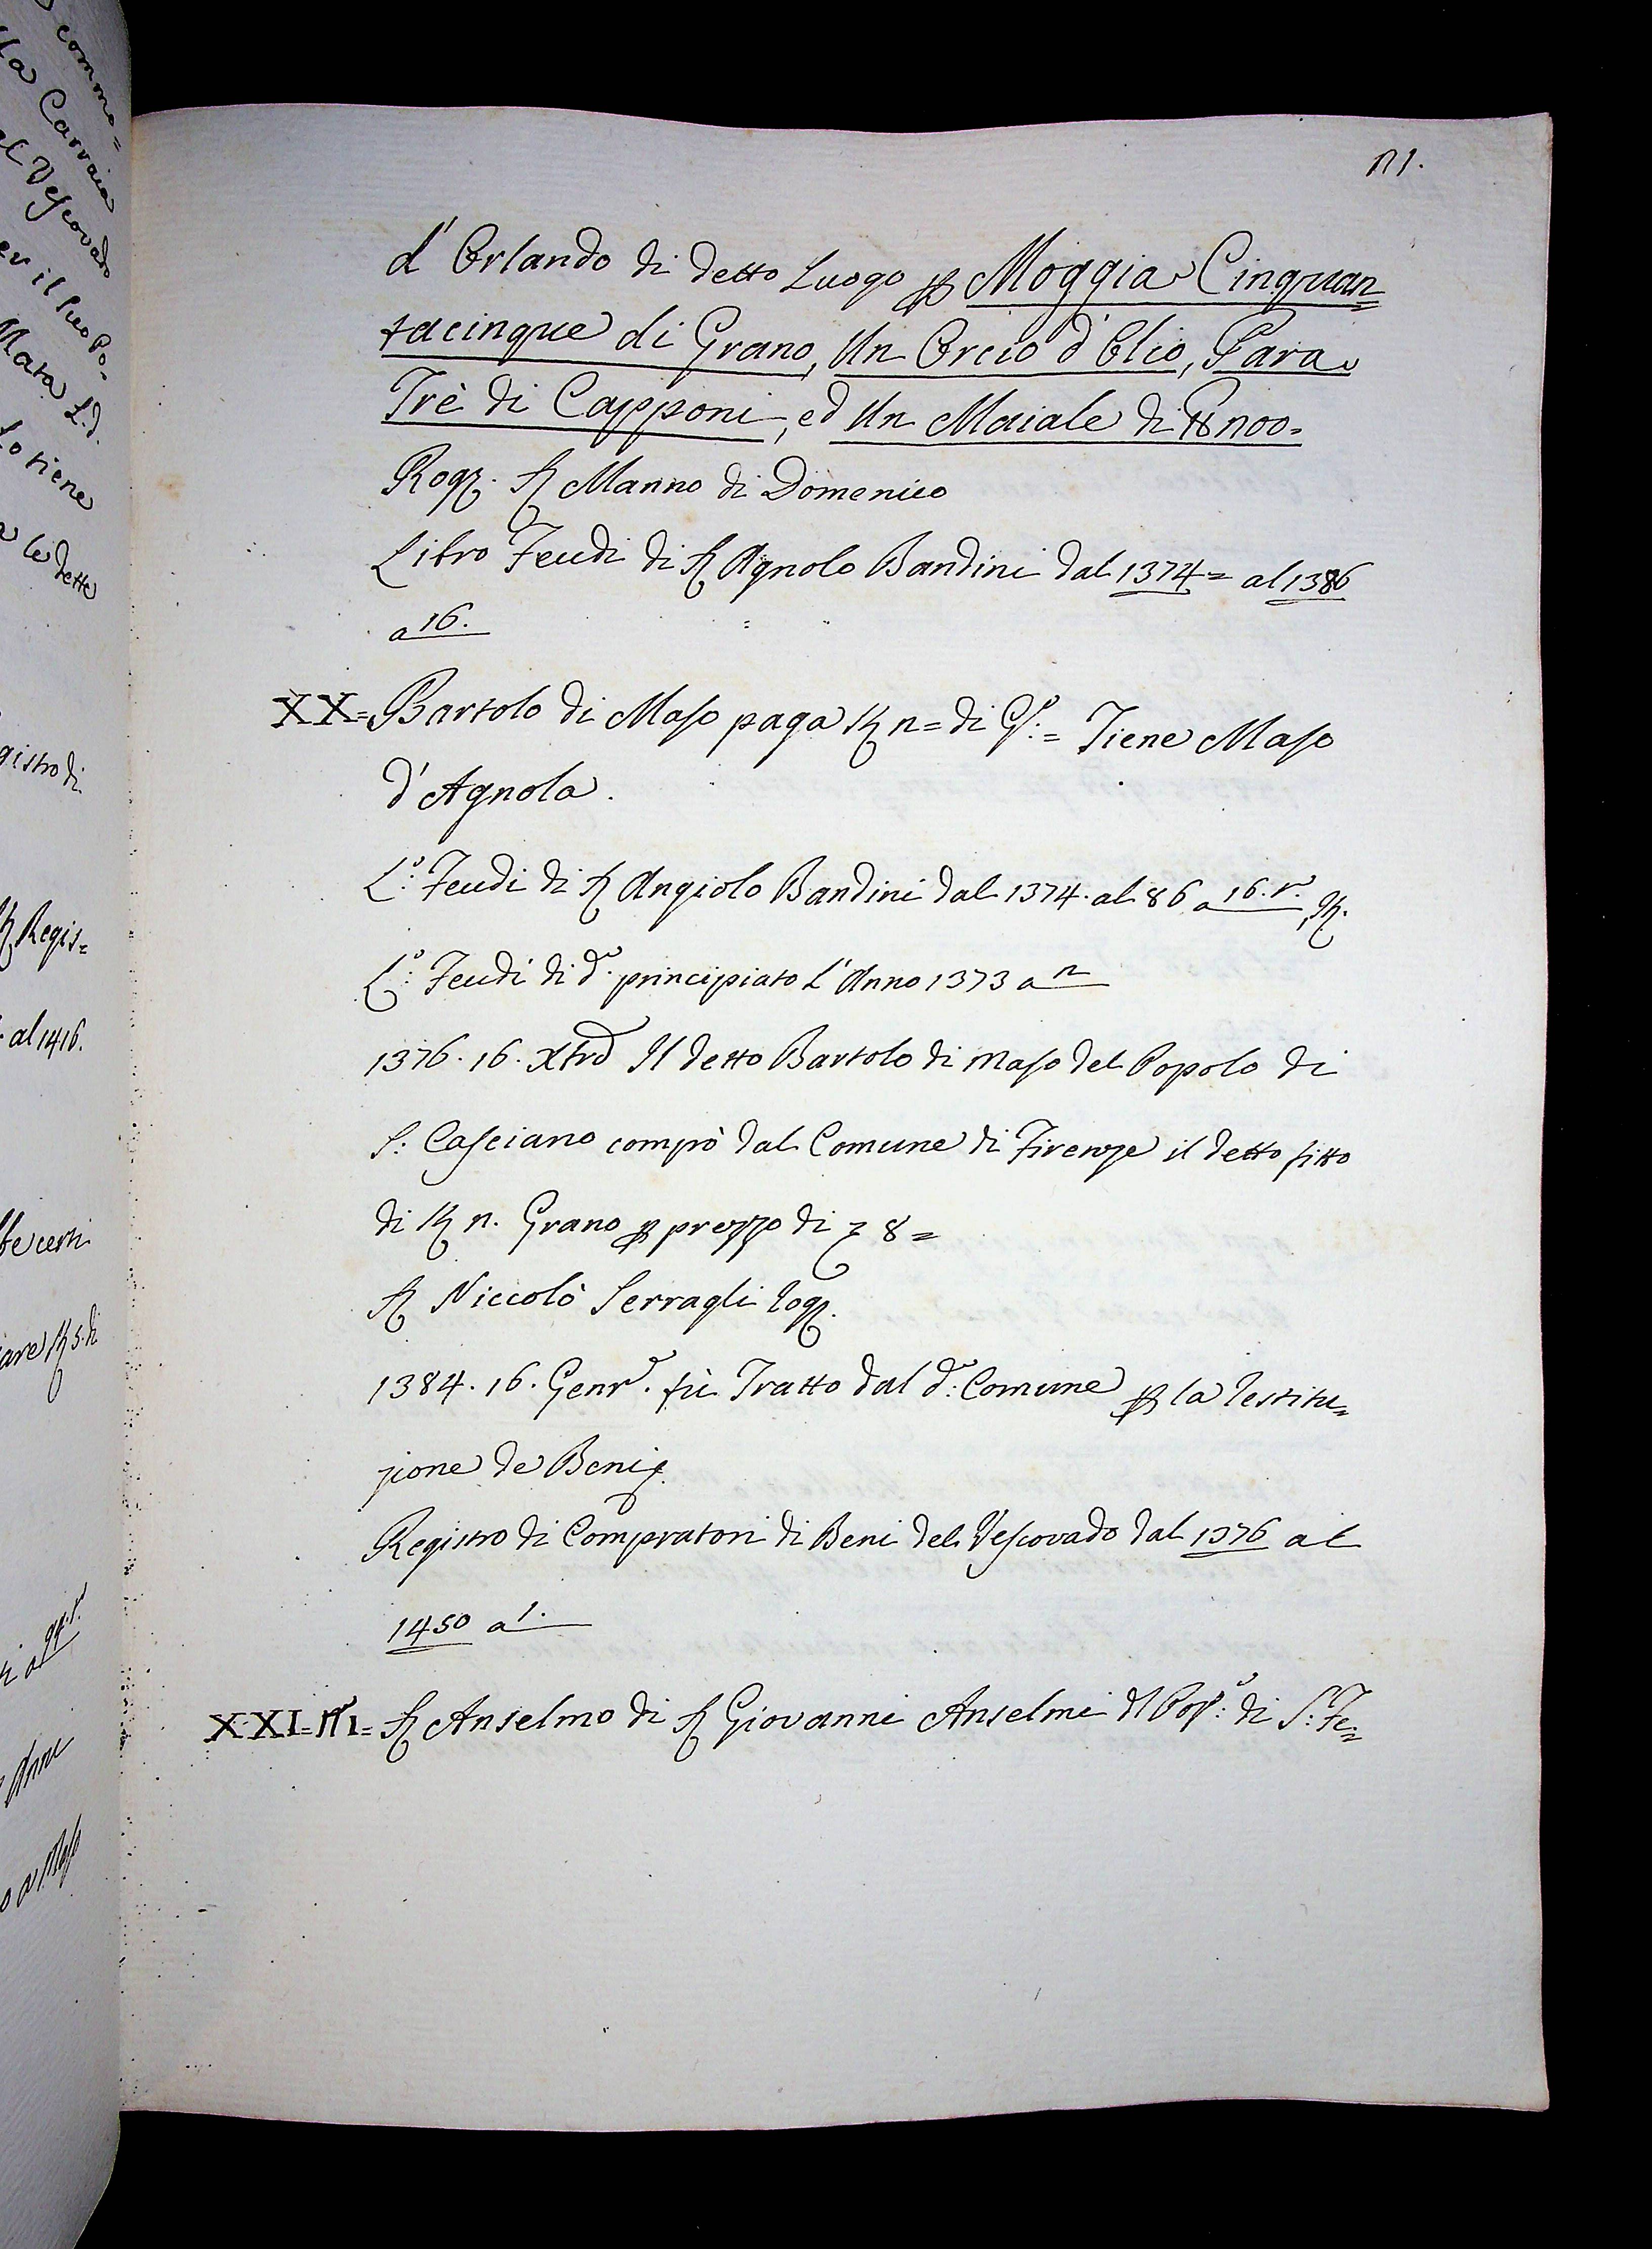 121.
d'Orlando di detto Luogo p Moggia Cinquan=
tacinque di Grano, Un Orcio d'Olio, Para
Trè di Capponi, ed Un Maiale di ℔ 200=
Rog. Sr Manno di Domenico
Libro Feudi di Sr Agnolo Bandini dal 1374= al 1386
a 16.
XX= Bartolo di Maso paga St 2= di Gº:= Tiene Maso
d'Agnola.
Lº: Feudi di Sr Angiolo Bandini dal 1374. al 86 a 16.t.,
Lº: Feudi di dº. principiato l'Anno 1373 a 2
1376. 16. Xbre Il detto Bartolo di Maso del Popolo di
S: Casciano comprò dal Comune di Firenze il detto fitto
di St 2. Grano p prezzo di 8=
Sr Niccolò Serragli rog.
1384. 16. Genrº. fù Tratto dal dº: Comune p la restitu=
zione de Beni
Registro di Compratori di Beni del Vescovado dal 1376 al
1450 a 1.
XXI= Sr Anselmo di Sr Giovanni Anselmi dl Popº: di S: Fe=
comme=
la Carraia
el Vescovado
er il suo Po=
Lo tiene
le dette
gistro di
Regis=
al 1416.